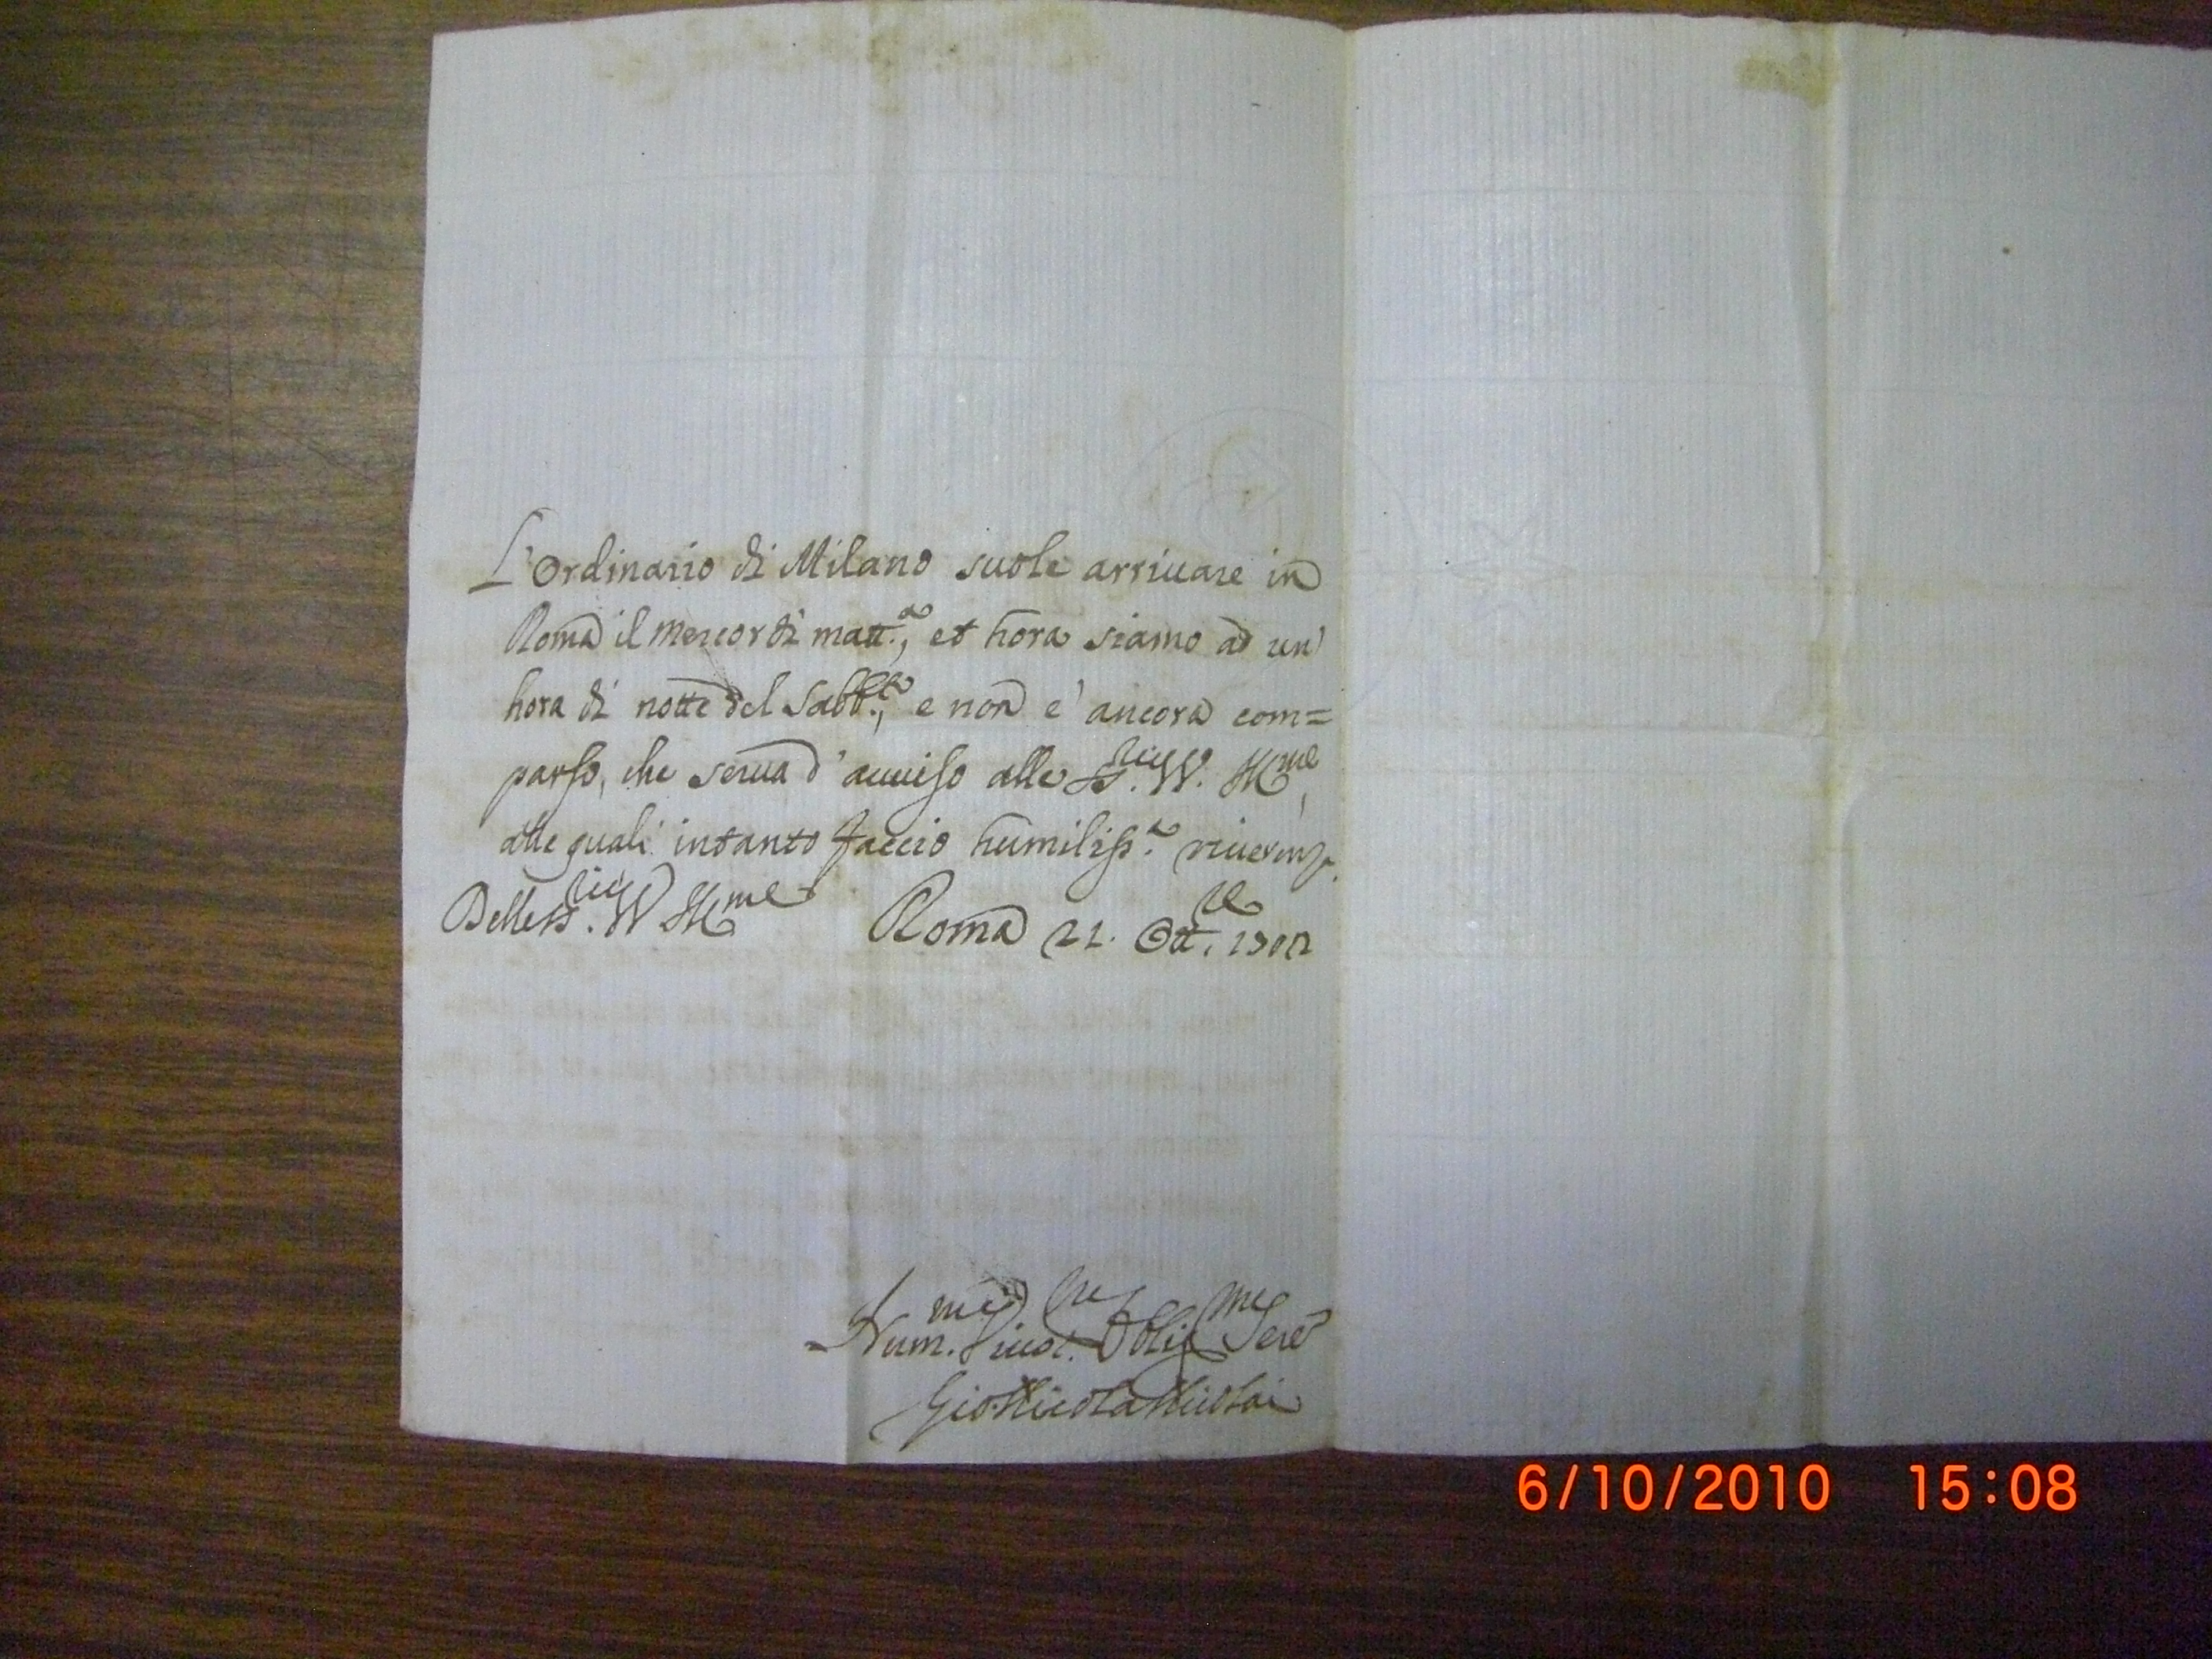 L'Ordinario di Milano suole arriuare in
Roma il Mercordì matt.a, et hora siamo ad un'
hora di notte del Sabb.to, e non è ancora com=
parso, che serua d'auuiso alle SS.rie VV. Ill.me,
alle quali intanto faccio humiliss.a riuerenza.
Delle SS.rie VV Ill.me Roma 21. Ott.re 1702
Hum.mo Diuot.mo Oblig.mo Ser.e
Gio: Nicola Nicolai
6/10/2010 15:08